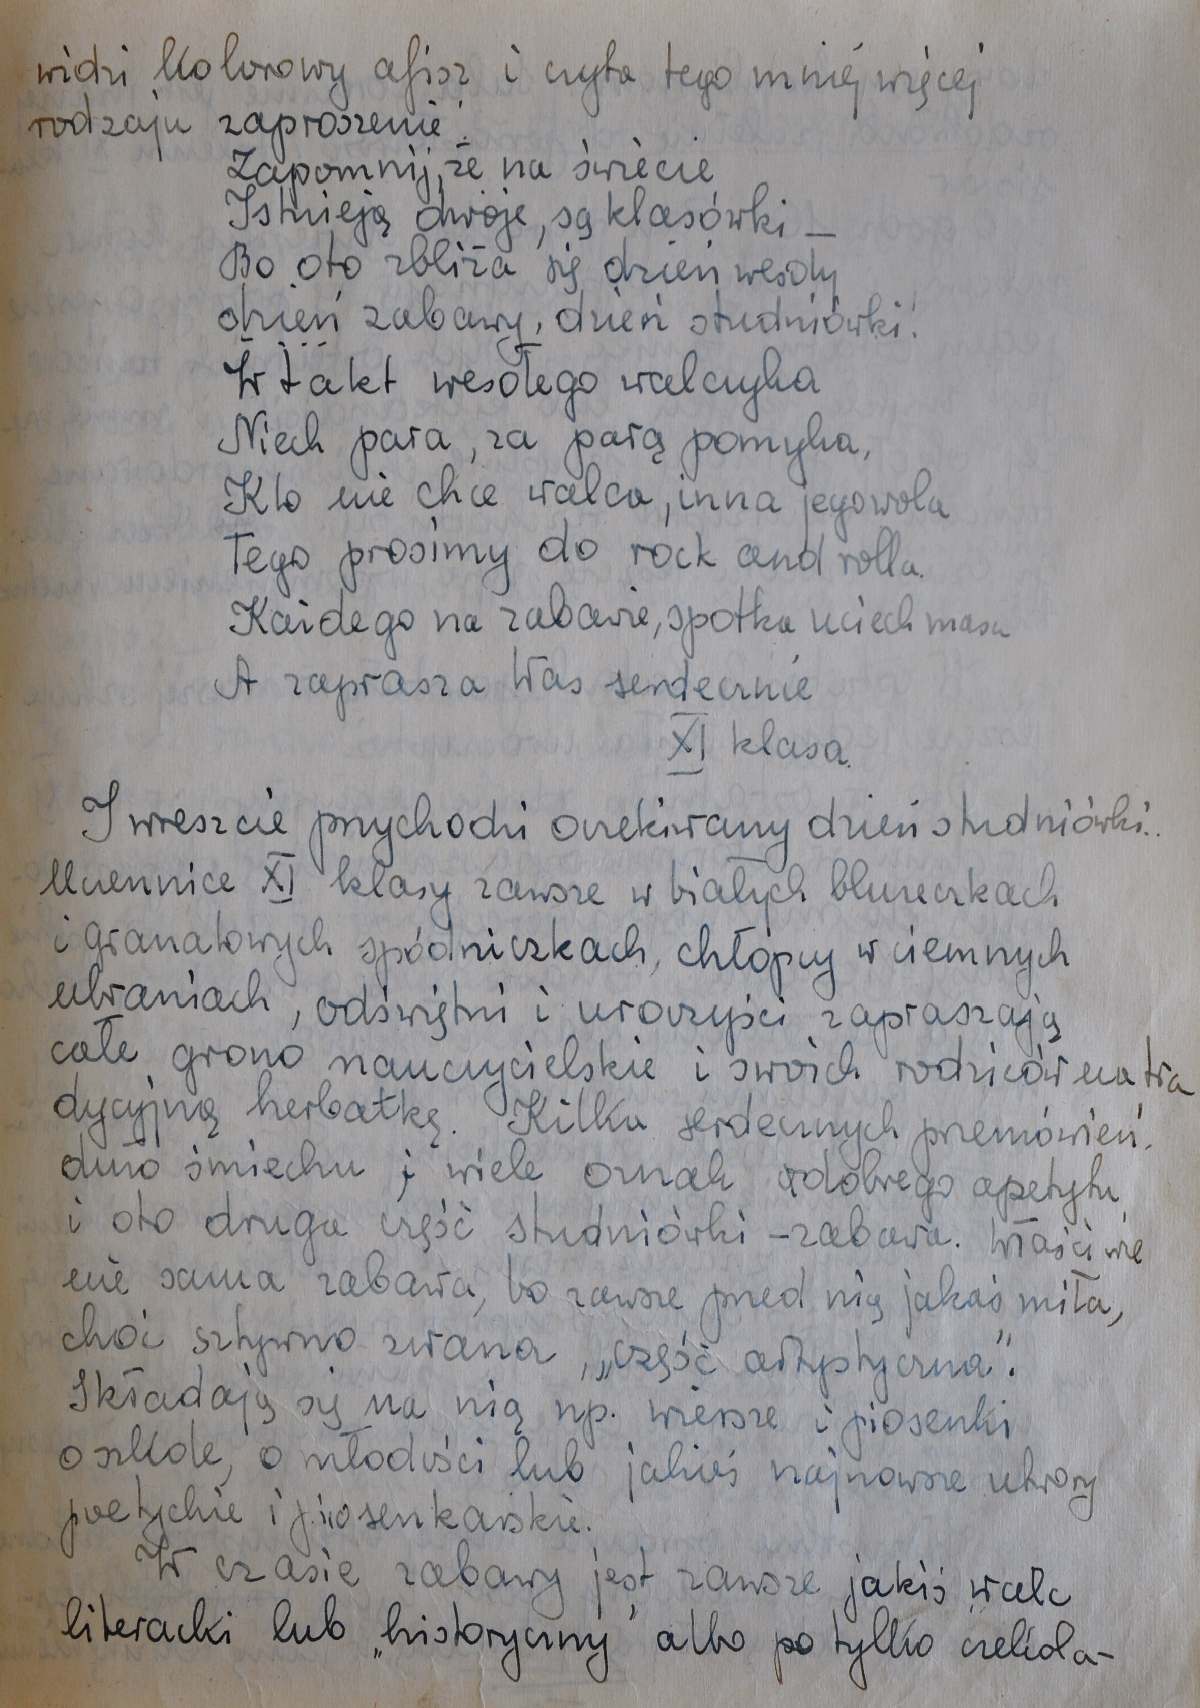 widzi kolorowy afisz i czyta tego mniej więcej
rodzaju zaproszenie:
Zapomnij, że na świecie
Istnieją dwóje, są klasówki –
Bo oto zbliża się dzień wesoły
dzień zabawy, dzień studniówki!
W takt wesołego walczyka
Niech para, za parą pomyka,
Kto nie chce walca, inna jego wola
Tego prosimy do rock and rolla.
Każdego na zabawie, spotka uciech masa
A zaprasza Was serdecznie
XI klasa.
I wreszcie przychodzi oczekiwany dzień studniówki..
Uczennice XI klasy zawsze w białych bluzeczkach
i granatowych spódniczkach, chłopcy w ciemnych
ubraniach, odświętni i uroczyści zapraszają
całe grono nauczycielskie i swoich rodziców na tra
dycyjną herbatkę. Kilka serdecznych przemówień,
dużo śmiechu i wiele oznak dobrego apetytu
i oto druga część studniówki – zabawa. Właściwie
nie sama zabawa, bo zawsze przed nią jakaś miła,
choć sztywno zwana, „część artystyczna”.
Składają się na nią np. wiersze i piosenki
o szkole, o młodości lub jakieś najnowsze utwory
poetyckie i piosenkarskie.
W czasie zabawy jest zawsze jakiś walc
literacki lub „historyczny” albo po tylko czekola-